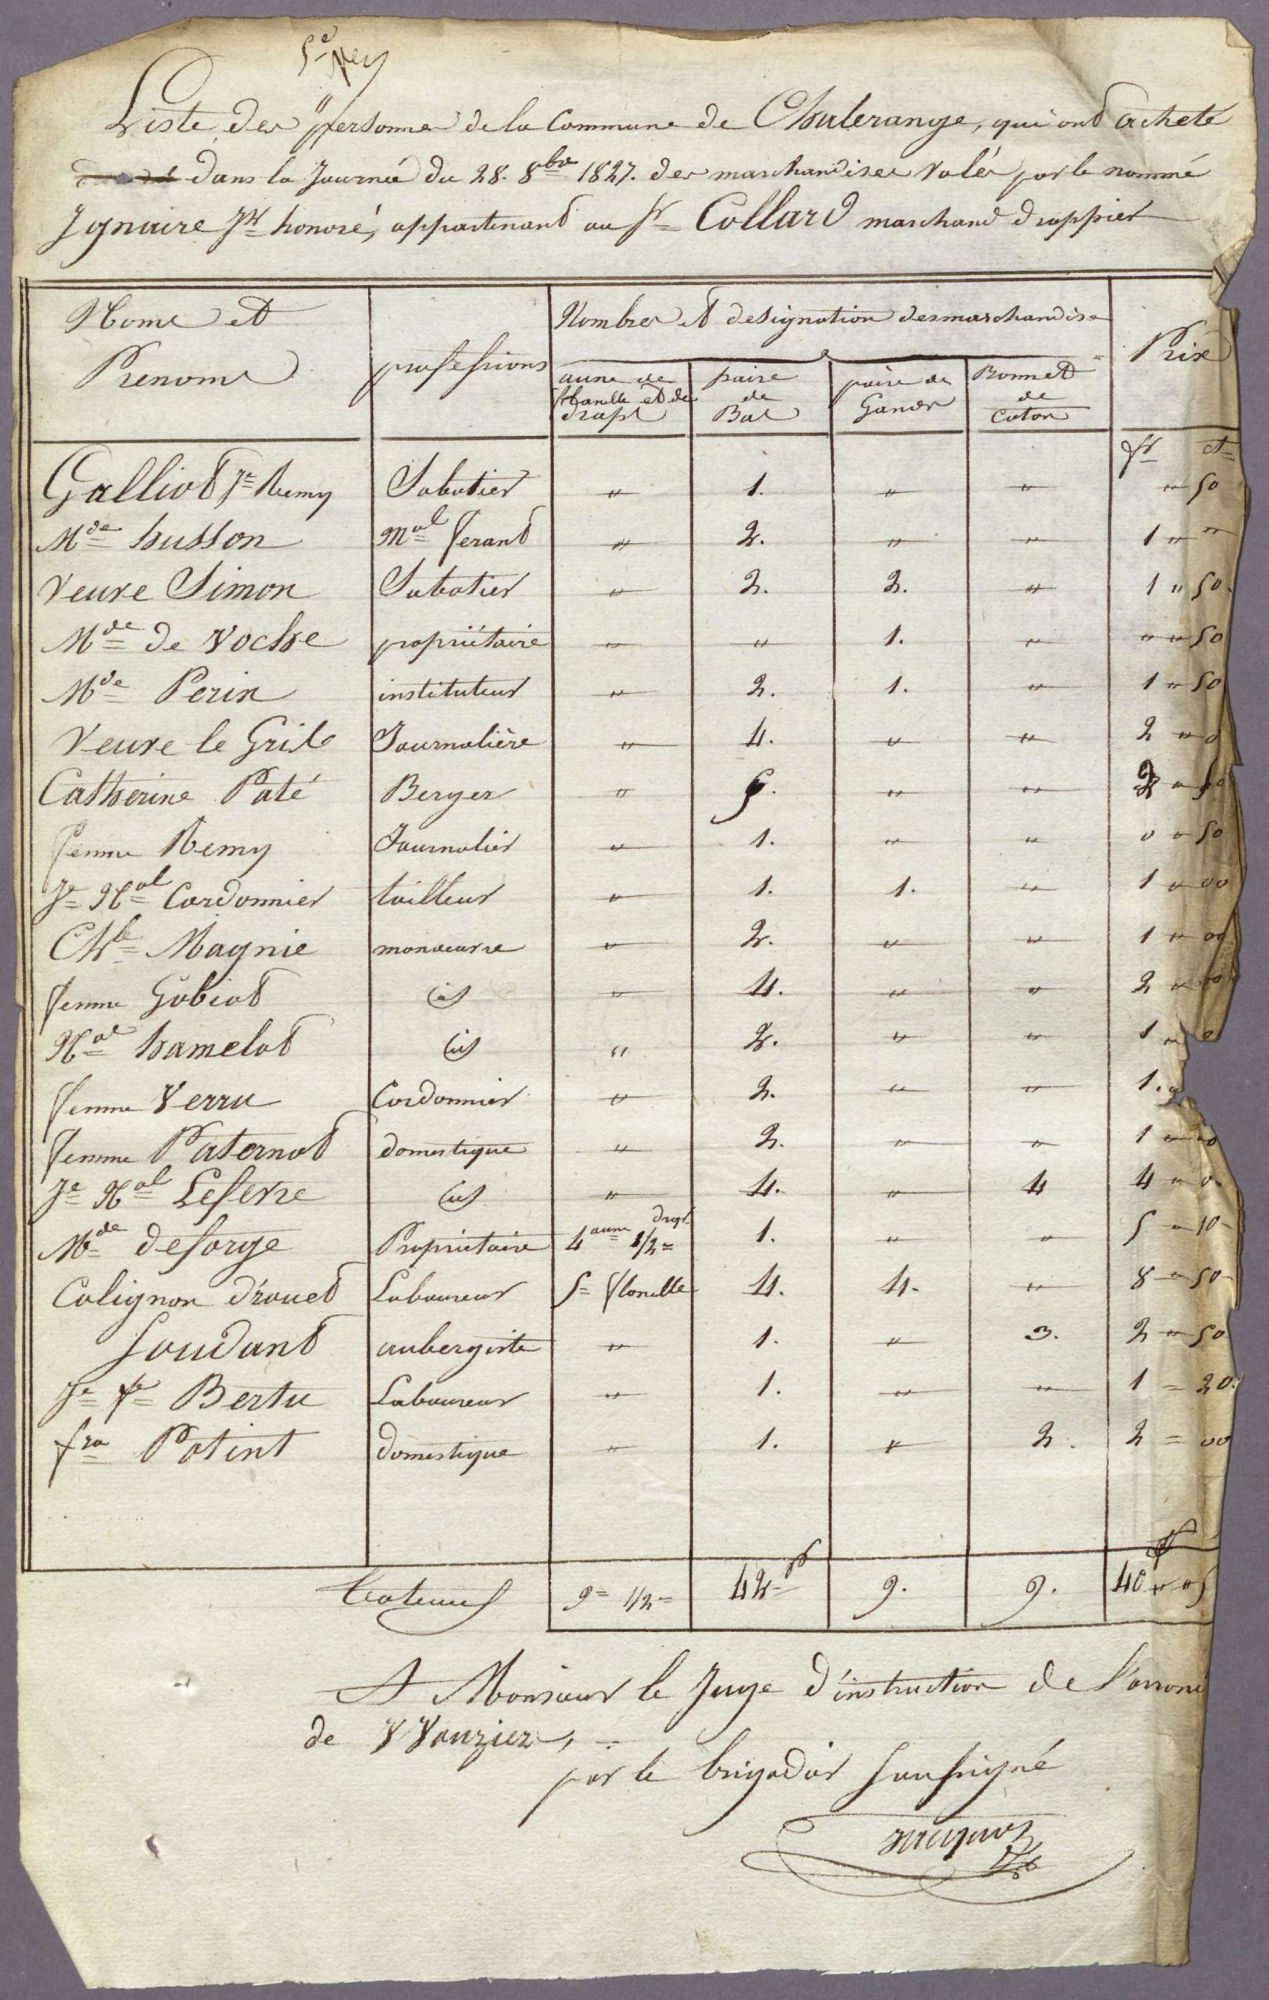 Liste des personnes de la Commune de Chalerange, qui ont acheté
dans la Journée du 28. 8bre 1827. des marchandises Volés par le nommé
Ignaire Jh honoré, appartenant au Sr Collard marchand drappier
Noms et Prenoms | professions | Nombres et designation des marchandises | Prix
aune de flanelle et de drapt | paire de Bat | paire de Gands | Bonnet de Coton | fr ct
Galliot Je Remy | Sabotier | " | 1. | " | " | " 50
Mde husson | Mal ferant | " | 2. | " | " | 1 " "
Veuve Simon | Sabotier | " | 2. | 2. | " | 1 " 50
Mde de Voche | propriétaire | " | " | 1. | " | " " 50
Mde Perin | instituteur | " | 2. | 1. | " | 1 " 50
Veuve le Gris | Journalière | " | 4. | " | " | 2 " 0
Catherine Paté | Berger | " | 5. | " | " | 2 " 50
femme Remy | Journalier | " | 1. | " | " | 0 " 50
Je Nal Cordonnier | tailleur | " | 1. | 1. | " | 1 " 00
Chle Magnie | monoeuvre | " | 2. | " | " | 1 " 00
femme Gobiot | id | " | 4. | " | " | 2 " 00
Nal hamelot | id | " | 2. | " | " | 1 " 0
femme Verru | Cordonnier | " | 2. | " | " | 1.
femme Paternot | domestique | " | 2. | " | " | 1 " 00
Je Nal Lefevre | id | " | 4. | " | 4 | 4 " 0
Mde deforge | Propriétaire | 4 aune 1/2 drapt | 1. | " | " | 5 " 10
Colignon Drouet | Laboureur | 5 = flanelle | 4. | 4. | " | 8 " 50
Soudant | aubergiste | " | 1. | " | 3. | 2 " 50
Je fe Bertu | Laboureur | " | 1. | " | " | 1 = 20.
fra Potint | domestique | " | 1. | " | 2. | 2 = 00
Toteaux | 9 = 1/2 = | 42 = p | 9. | 9. | 40 " 05
A Monsieur le Juge d'instruction de l'arroné
de VVouziez,
par le brigadier Soussigné